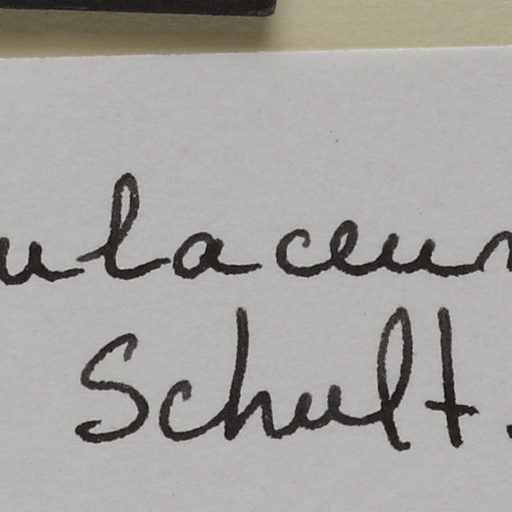 ulaceum
Schult.